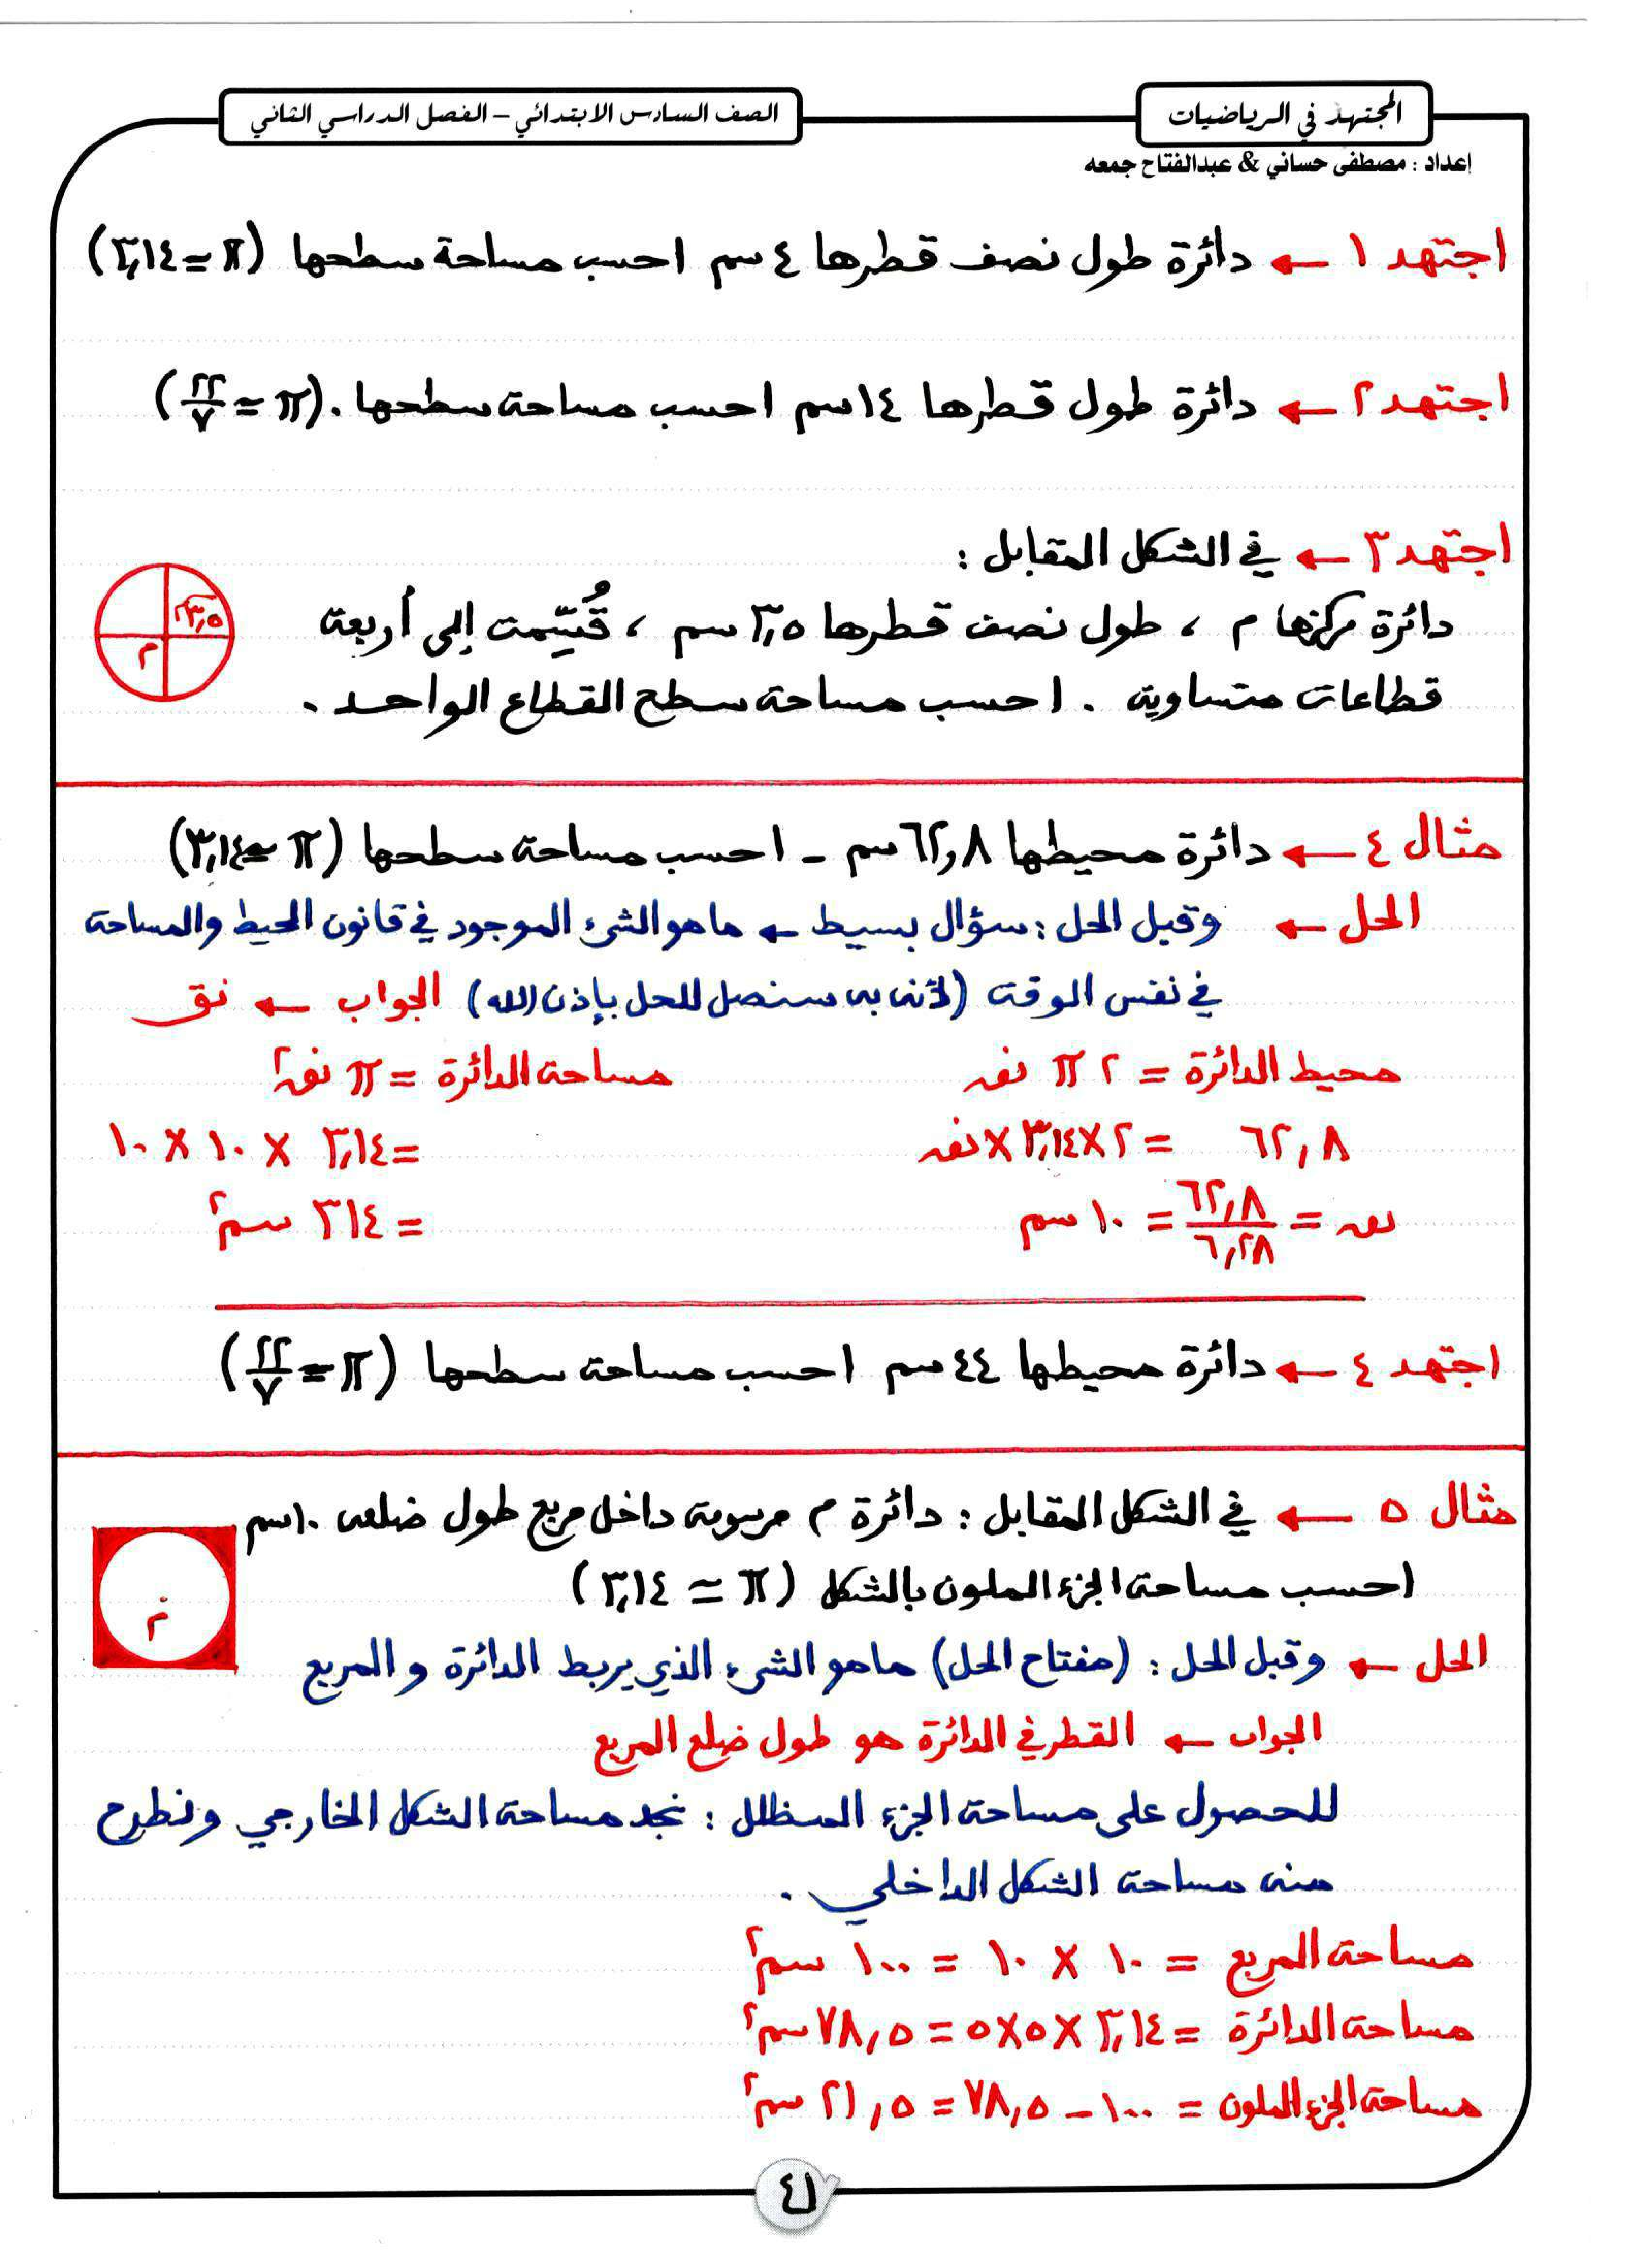 المجتهد في الرياضيات
الصف السادس الابتدائي – الفصل الدراسي الثاني
إعداد : مصطفى حساني & عبدالفتاح جمعه
اجتهد ١ ← دائرة طول نصف قطرها ٤ سم احسب مساحة سطحها (π = ٣,١٤)
اجتهد ٢ ← دائرة طول قطرها ١٤ سم احسب مساحة سطحها . (π ≃ ٢٢/٧)
اجتهد ٣ ← في الشكل المقابل :
دائرة مركزها م ، طول نصف قطرها ٣,٥ سم ، قُسِّمت إلى أربعة
٣,٥
م
قطاعات متساوية . احسب مساحة سطح القطاع الواحد .
مثال ٤ ← دائرة محيطها ٦٢,٨ سم - احسب مساحة سطحها (π ≃ ٣,١٤)
الحل ← وقبل الحل : سؤال بسيط ← ماهو الشيء الموجود في قانون المحيط والمساحة
في نفس الوقت (لأنه به سنصل للحل بإذن الله) الجواب ← نق
محيط الدائرة = ٢ π نق مساحة الدائرة = π نق٢
٦٢,٨ = ٢ × ٣,١٤ × نق = ٣,١٤ × ١٠ × ١٠
نق = ٦٢,٨/٦,٢٨ = ١٠ سم = ٣١٤ سم٢
اجتهد ٤ ← دائرة محيطها ٤٤ سم احسب مساحة سطحها (π = ٢٢/٧)
مثال ٥ ← في الشكل المقابل : دائرة م مرسومة داخل مربع طول ضلعه ١٠ سم
احسب مساحة الجزء الملون بالشكل (π ≃ ٣,١٤)
م
الحل ← وقبل الحل : (مفتاح الحل) ماهو الشيء الذي يربط الدائرة و المربع
الجواب ← القطر في الدائرة هو طول ضلع المربع
للحصول على مساحة الجزء المظلل : نجد مساحة الشكل الخارجي ونطرح
منه مساحة الشكل الداخلي .
مساحة المربع = ١٠ × ١٠ = ١٠٠ سم٢
مساحة الدائرة = ٣,١٤ × ٥ × ٥ = ٧٨,٥ سم٢
مساحة الجزء الملون = ١٠٠ - ٧٨,٥ = ٢١,٥ سم٢
٤١